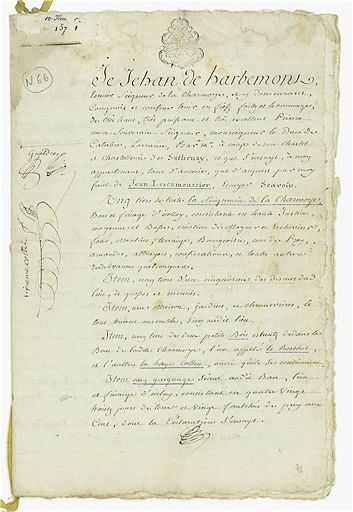 N 66
Je Jehan de harbemont,
Ecuier Seigneur de la Charmoye, et y demeurant
Congnois et confesse tenir en fief, foid et hommage,
de très haut, très puissant et très excellent Prince
mon Souverain Seigneur, monseigneur le Duc de
Calabre, Lorraine, Bar &a. à cause de son chatel
et chatellenie de Sathenay, ce que s'ensuyt, à moy
appartenant, tant d'ancien, que d'acquest par moy
fait de Jean Lescamoussier, Escuyer Scavoir.
Ung tiers de toute la Seigneurie de la Charmoye,
Ban et finage d'icelle, consistant en haute Justice,
moyenne et Basse, création de Mayeur et Eschevins,
four, moulins, terraige, Bourgeoisie,
amandes, attrayes, confiscations, et toutes autres
redebvances quelconques.
Item, ung tiers d'un cinquiesme des dismes dud.
lieu, et grosses et menues.
Item, une maison, jardins, et chenevieres, le
tout tenant ensemble,
Item, ung tiers de deux petits Bois estantz dedans le
Ban de ladite Charmoye, l'un appelé le Boschet,
et l'autre la haye Collin, ainsi qu'ils se contiennent.
Item ung gaignage séant audit Ban, lieu
et finaige d'icelluy, consistant en quatre vingt
huict jours de terre et vingt fauchées de prey au
Cent, dont la Déclaration S'ensuyt.